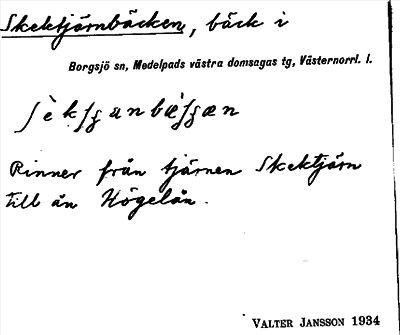 Skektjärnbäcken, bäck i
Borgsjö sn, Medelpads västra domsagas tg, Västernorrl. l.
Rinner från tjärnen Skektjärn
till ån Högelån.
VALTER JANSSON 1934